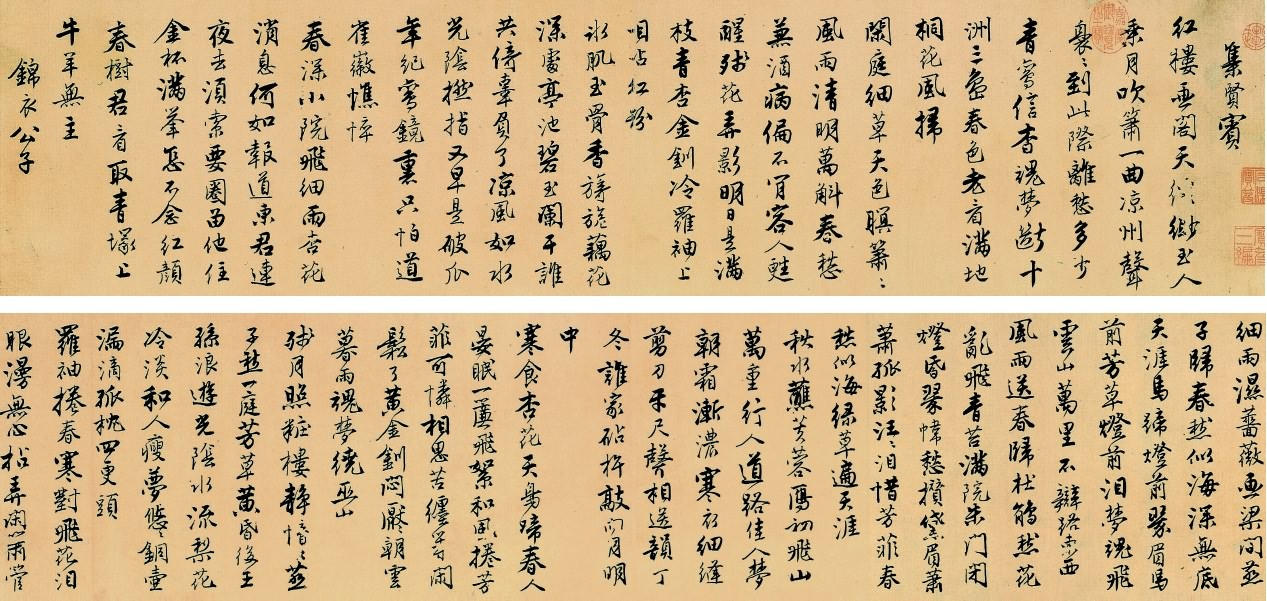 集賢賓
紅樓畫閣天縹緲玉人
乘月吹簫一曲涼州聲
裊〻到此際離愁多少
青鸞信杳魂夢斷十
洲三島春色老看滿地
桐花風掃
閑庭細草天色暝蕭〻
風雨清明萬斛春愁
兼酒病偏不管客人甦
醒殘花弄影明日是滿
枝青杏金釧冷羅袖上
紅粉
冰肌玉骨香旖旎藕花
深處亭池碧玉闌干誰
共倚辜負了涼風如水
光陰撚指又早是破瓜
年紀鸞鏡裏只怕道
崔徽憔悴
春深小院飛細雨杏花
消息何如報道東君連
夜去須索要圈留他住
金杯滿舉怎不念紅顏
春樹君看取青塚上
牛羊無主
錦衣公子
細雨濕薔薇畫梁間燕
子歸春愁似海深無底
天涯馬蹄燈前翠眉馬
前芳草燈前淚夢魂飛
雲山萬里不辯路東西
風雨送春歸杜鵑愁花
亂飛青苔滿院朱門閉
燈昏翠幃愁攢黛眉蕭
蕭孤影汪〻淚惜芳菲春
愁似海綠草遍天涯
秋水蘸芙蓉雁初飛山
萬重行人道路佳人夢
朝霜漸濃寒衣細縫
剪刀牙尺聲相送韻丁
冬誰家砧杵敲向月明
中
寒食杏花天鳥啼春人
晏眠一簾飛絮和風捲芳
菲可憐相思苦纏等閑
鬆了黃金釧悶厭朝雲
暮雨魂夢繞巫山
殘月照粧樓靜愔〻燕
子愁一庭芳草黃昏後王
孫浪遊光陰水流梨花
冷淡和人瘦夢悠〻銅壺
漏滴孤枕四更頭
羅袖捲春寒對飛花淚
眼漫無心拈弄閑簫管